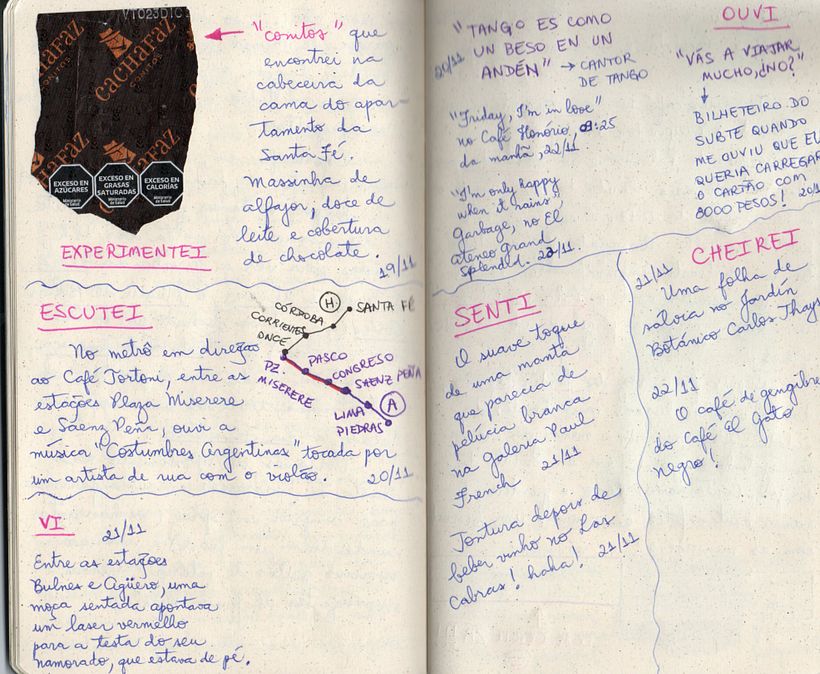 VT023D1C
CACHAFAZ
CONITOS
CACHAFAZ
CONITOS
CACHAFAZ
CACHAFAZ
EXCESO EN AZÚCARES
Ministerio de Salud
EXCESO EN GRASAS SATURADAS
Ministerio de Salud
EXCESO EN CALORÍAS
Ministerio de Salud
EXPERIMENTEI
"conitos" que
encontrei na
cabeceira da
cama do apar-
tamento da
Santa Fé.
Massinha de
alfajor, doce de
leite e cobertura
de chocolate.
19/11
ESCUTEI
H
SANTA FÉ
CÓRDOBA
CORRIENTES
ONCE
PZ.
MISERERE
PASCO
CONGRESO
SAENZ PEÑA
LIMA
A
PIEDRAS
No metrô em direção
ao Café Tortoni, entre as
estações Plaza Miserere
e Sáenz Peña, ouvi a
música "Costumbres Argentinas" tocada por
um artista de rua com o violão. 20/11
VI
21/11
Entre as estações
Bulnes e Agüero, uma
moça sentada apontava
um laser vermelho
para a testa do seu
namorado, que estava de pé.
OUVI
20/11
"TANGO ES COMO
UN BESO EN UN
ANDÉN" → CANTOR
DE TANGO
"Friday, I'm in love"
no Café Honório, 09:25
da manhã, 22/11
"I'm only happy
when it rains",
Garbage, no El
ateneo Grand
Splendid. 22/11.
"VÁS A VIAJAR
MUCHO, ¿NO?"
BILHETEIRO DO
SUBTE QUANDO
ME OUVIU QUE EU
QUERIA CARREGAR
O CARTÃO COM
8000 PESOS! 20/1
SENTI
O suave toque
de uma manta
que parecia de
pelúcia branca
na galeria Paul
French 21/11
Tontura depois de
beber vinho no Las
Cabras! haha! 21/11
CHEIREI
21/11
Uma folha de
sálvia no Jardín
Botánico Carlos Thays
22/11
O café de gengibre
do Café El Gato
negro!